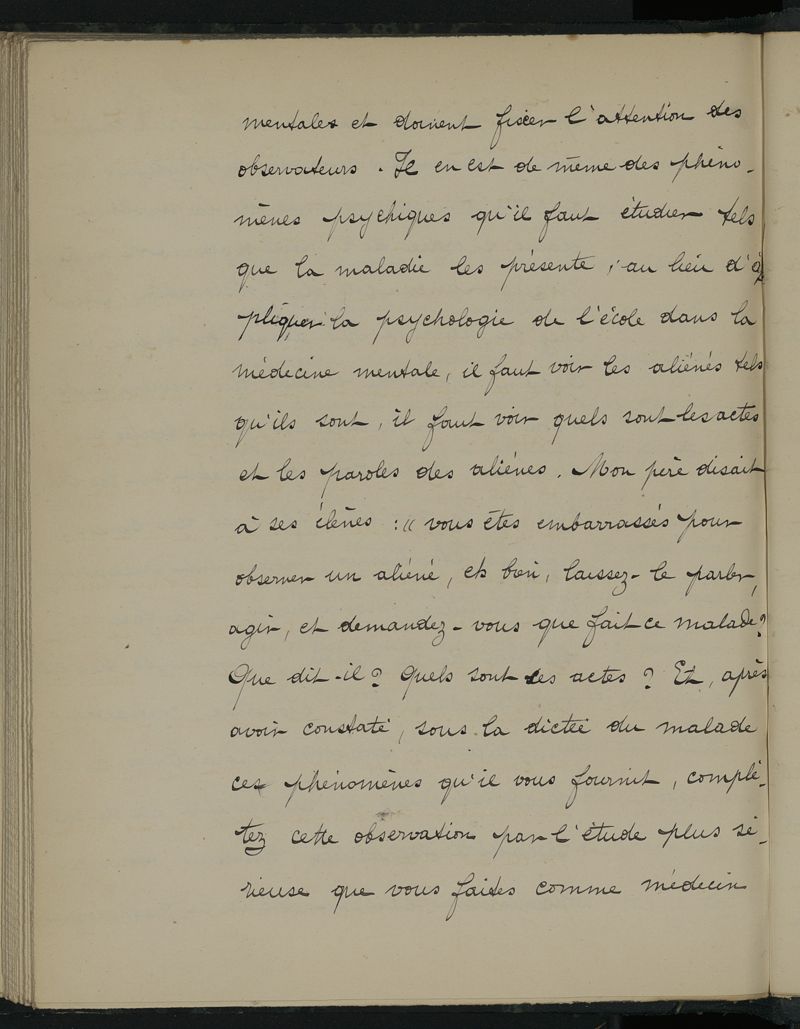 mentales et doivent fixer l'attention des
observateurs. Il en est de même des phéno-
mènes psychiques qu'il faut étudier tels
que la maladie les présente ; au lieu d'ap
pliquer la psychologie de l'école dans la
médecine mentale, il faut voir les aliénés tels
qu'ils sont, il faut voir quels sont les actes
et les paroles des aliénés. Mon père disait
à ses élèves : " vous êtes embarrassés pour
observer un aliéné, eh bien, laissez-le parler,
agir, et demandez-vous que fait ce malade ?
Que dit-il ? Quels sont ses actes ? Et, après
avoir constaté, sous la dictée du malade
ces phénomènes qu'il vous fournit, complé-
tez cette observation par l'étude plus sé-
rieuse que vous faites comme médecin